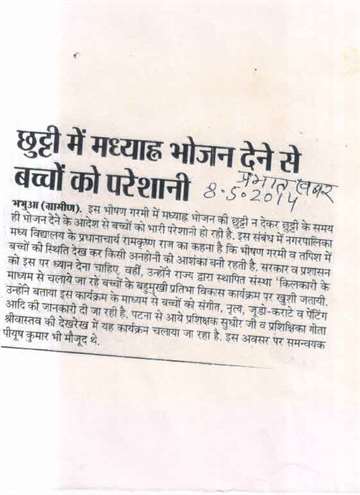 छुट्टी में मध्याह्न भोजन देने से
बच्चों को परेशानी
प्रभात खबर
8.5.2014
भभुआ (ग्रामीण). इस भीषण गरमी में मध्याह्न भोजन की छुट्टी न देकर छुट्टी के समय
ही भोजन देने के आदेश से बच्चों को भारी परेशानी हो रही है. इस संबंध में नगरपालिका
मध्य विद्यालय के प्रधानाचार्य रामकृष्ण राज का कहना है कि भीषण गरमी व तपिश में
बच्चों की स्थिति देख कर किसी अनहोनी की आशंका बनी रहती है. सरकार व प्रशासन
को इस पर ध्यान देना चाहिए. वहीं, उन्होंने राज्य द्वारा स्थापित संस्था 'किलकारी के
माध्यम से चलाये जा रहे बच्चों के बहुमुखी प्रतिभा विकास कार्यक्रम पर खुशी जतायी.
उन्होंने बताया इस कार्यक्रम के माध्यम से बच्चों को संगीत, नृत्य, जूडो-कराटे व पेंटिंग
आदि की जानकारी दी जा रही है. पटना से आये प्रशिक्षक सुधीर जी व प्रशिक्षिका गीता
श्रीवास्तव की देखरेख में यह कार्यक्रम चलाया जा रहा है. इस अवसर पर समन्वयक
पीयूष कुमार भी मौजूद थे.